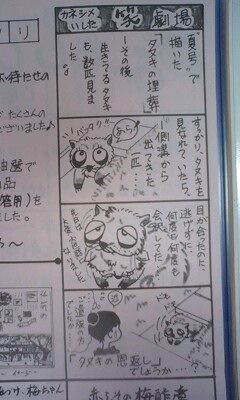 カネシメ
いしだ
劇場
「夏号」で
描いた
「タヌキの埋葬」
その後
生きてるタヌキ
も、数匹見ま
した。
すっかり、タヌキを
見なれていたら、
側溝から
出てきた
一匹…
あら!
バッタリ!
目が合ったのに、
逃げずに
何度も何度も
会釈した。
先日は
ご遺族の方
でしたか…
「タヌキの恩返し」
でしょうか…?
り
待たせの
たくさんの
ございました♪
抽選で
品
答用)を
した。
梅ちゃん
その梅酢漬